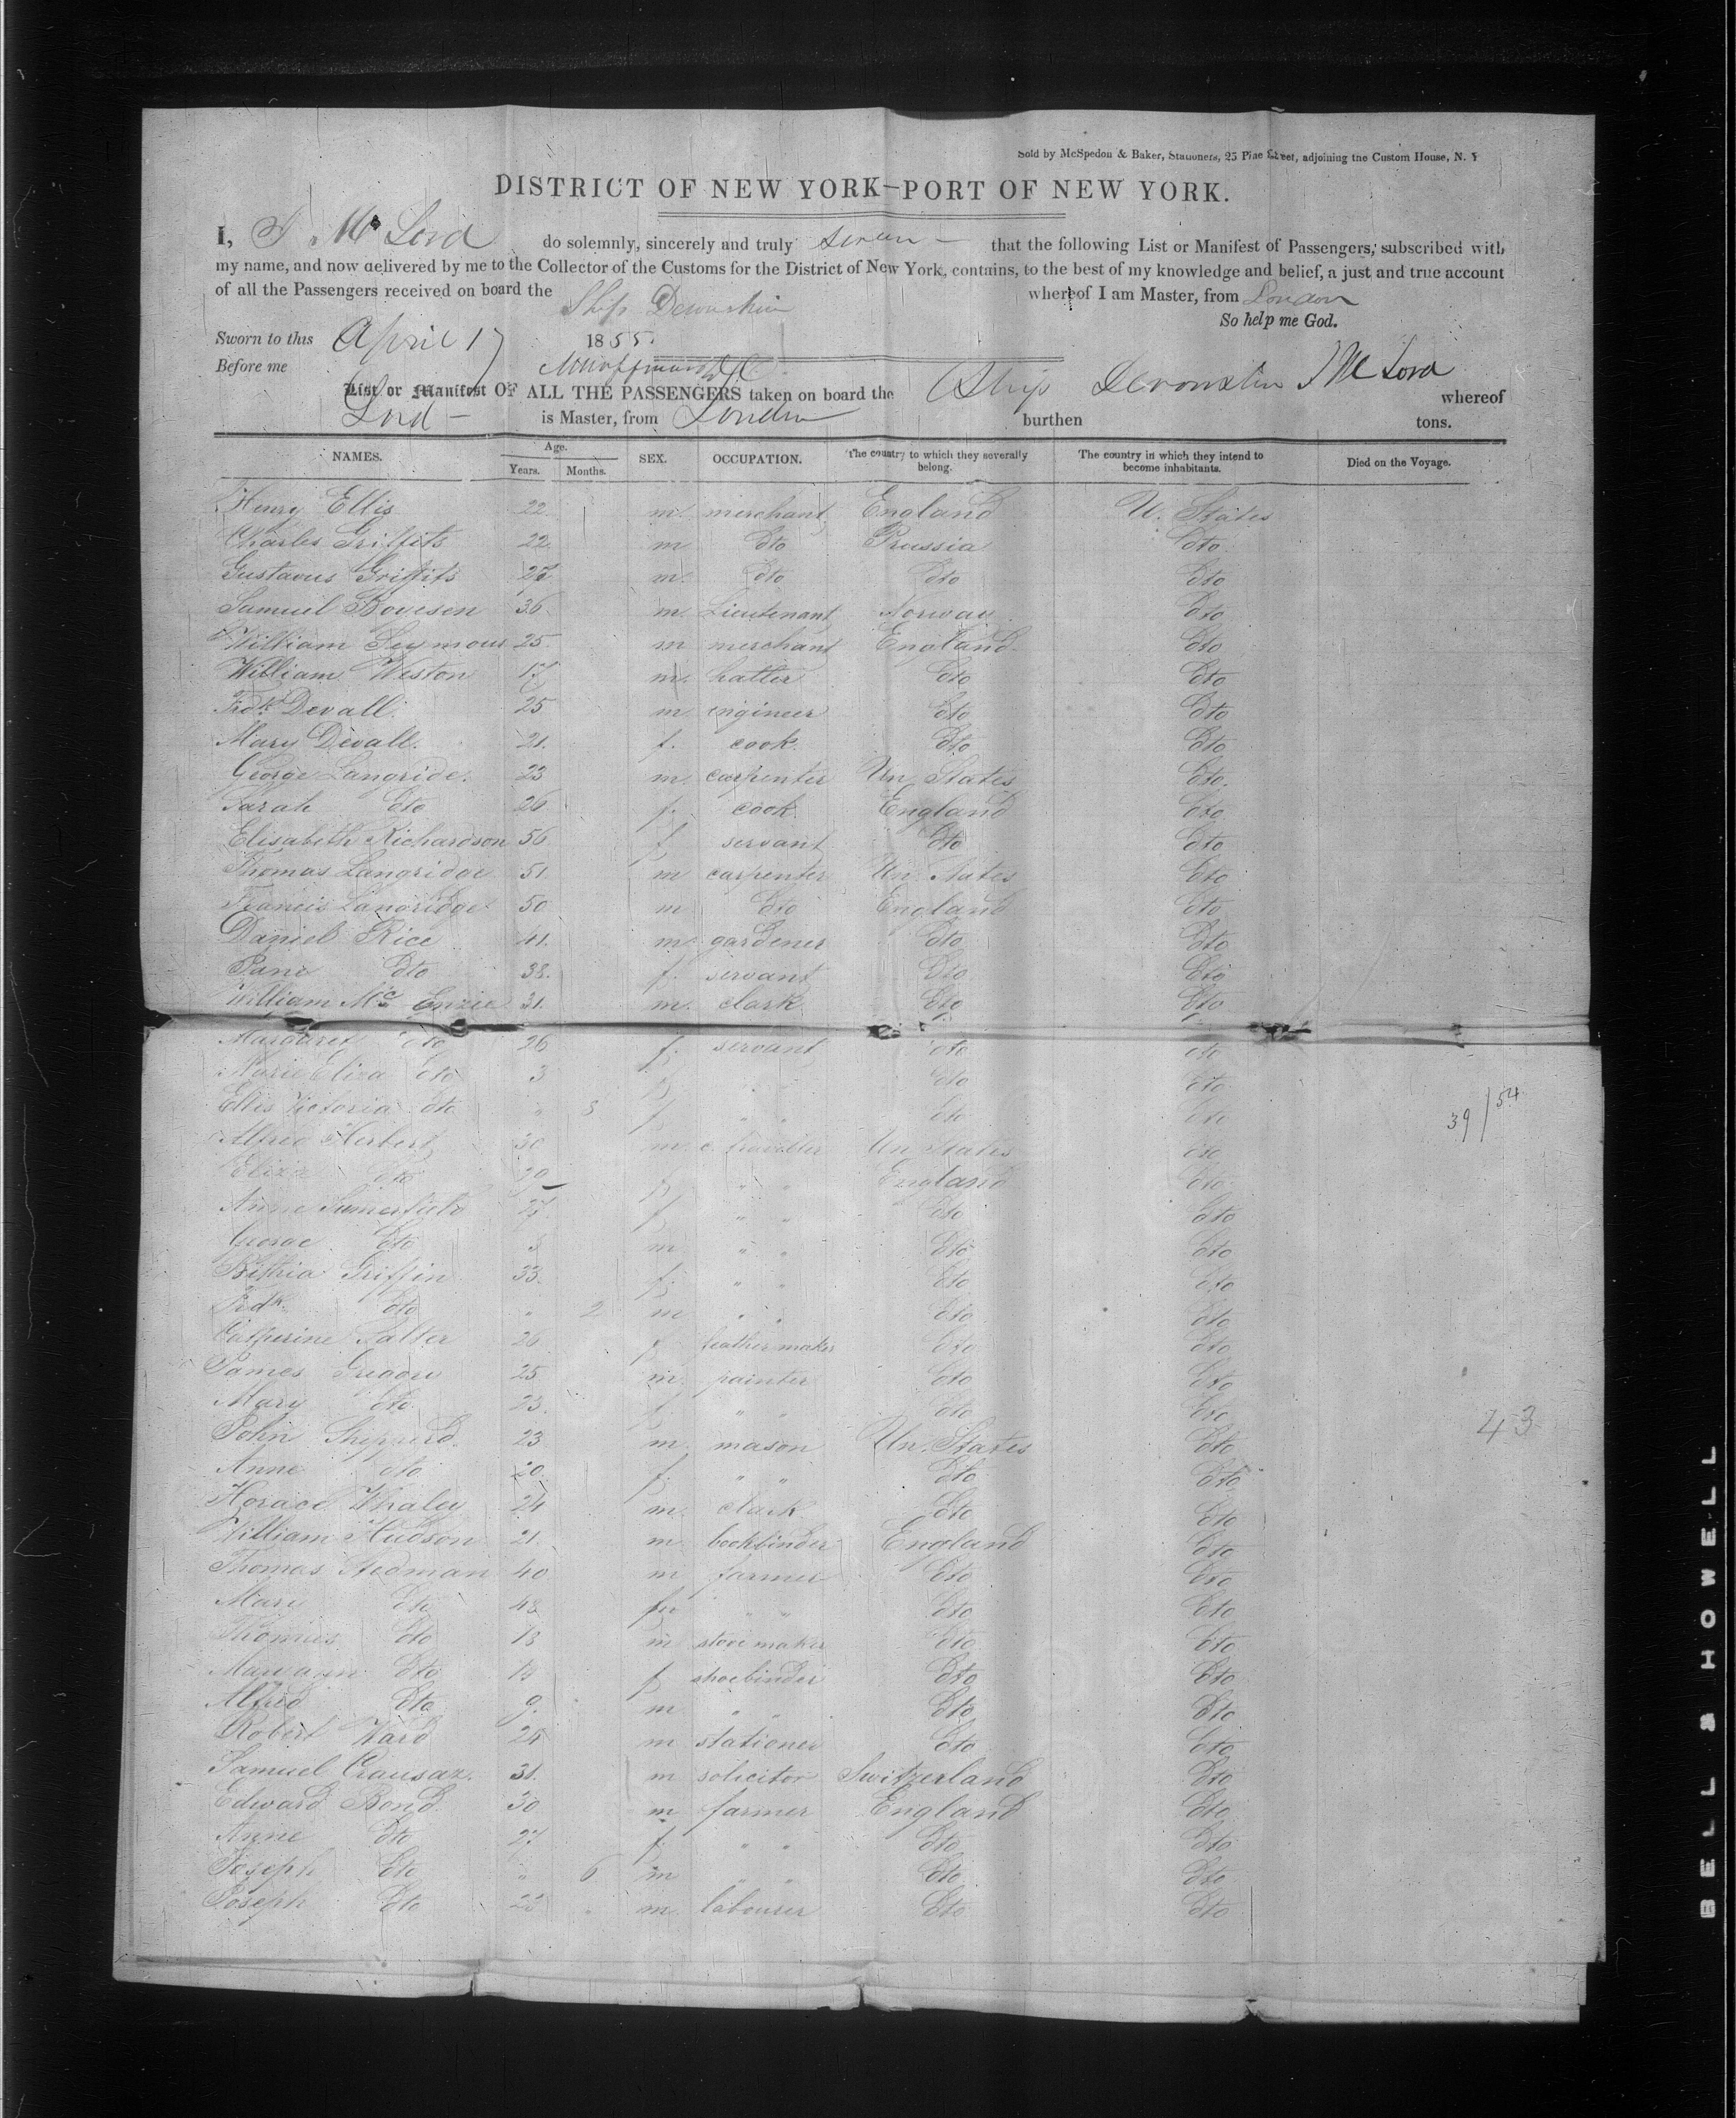 Sold by McSpedon & Baker, Stationers, 25 Pine Street, adjoining the Custom House, N. Y
DISTRICT OF NEW YORK—PORT OF NEW YORK.
I, J. M. Lord do solemnly, sincerely and truly swear that the following List or Manifest of Passengers, subscribed with
my name, and now delivered by me to the Collector of the Customs for the District of New York, contains, to the best of my knowledge and belief, a just and true account
of all the Passengers received on board the Ship Devonshire whereof I am Master, from London
So help me God.
Sworn to this April 17 1855.
Before me
List or Manifest OF ALL THE PASSENGERS taken on board the Ship Devonshire J M Lord whereof
Lord - is Master, from London burthen tons.
NAMES. Age. Years. Months. SEX. OCCUPATION. The country to which they severally belong. The country in which they intend to become inhabitants. Died on the Voyage.
Henry Ellis 22 m. merchant England U. States
Charles Griffits 22 m dto Prussia dto
Gustavus Griffits m. dto dto dto
Samuel Bovesen 36. m. Lieutenant Norway dto
William Seymour 25. m merchant England dto
William Weston 17 m. hatter dto dto
Fredk. Devall 25 m engineer dto dto
Mary Devall. 21. f. cook dto dto
George Langride. 23 m. carpenter Un. States dto.
Sarah dto 26 f. cook England dto
Elisabeth Richardson 56 f servant dto dto
Thomas Langridge 51. m carpenter Un. States dto
Francis Langridge 50 m dto England dto
Daniel Rice 41. m. gardener dto dto
Jane dto 38. f. servant dto dto
William Mc Enzie 31. m. clark dto dto
Margaret dto 26 f. servant dto dto
Marie Eliza dto 3 f. " " dto dto
Ellis Victoria dto " 8 f. " " dto dto
39/54
Alfred Herbert 30 m. Un States dto
Eliza dto f. " " England dto
Anne Sumerfield 27 f " " dto dto
George dto m " " dto dto
Bithia Griffin 33. f. " " dto dto
Fredk. dto " 2 m " " dto dto
Catherine Salter 26 f feather maker dto dto
James Gregory 25 m. painter dto dto
Mary dto 23. f " " dto dto
43
John Shepperd. 23 m. mason Un. States dto
Anne dto 20 f. " " dto dto
Horace Whaley 24 m. clark dto dto
William Hudson 21. m. bookbinder England dto
Thomas Stedman 40 m farmer dto dto
Mary dto 48 f " " dto dto
Thomas dto 18 m stove maker dto dto
Maryann dto f shoebinder dto dto
Alfred dto 9. m " " dto dto
Robert Ward 24 m stationer dto dto
Samuel Crausaz. 31. m solicitor Switzerland dto
Edward Bond. 30 m farmer England dto
Anne dto 27 f. " " dto dto
Joseph dto " 6 m " " dto dto
Joseph dto 23 m. labourer dto dto
BELL & HOWELL